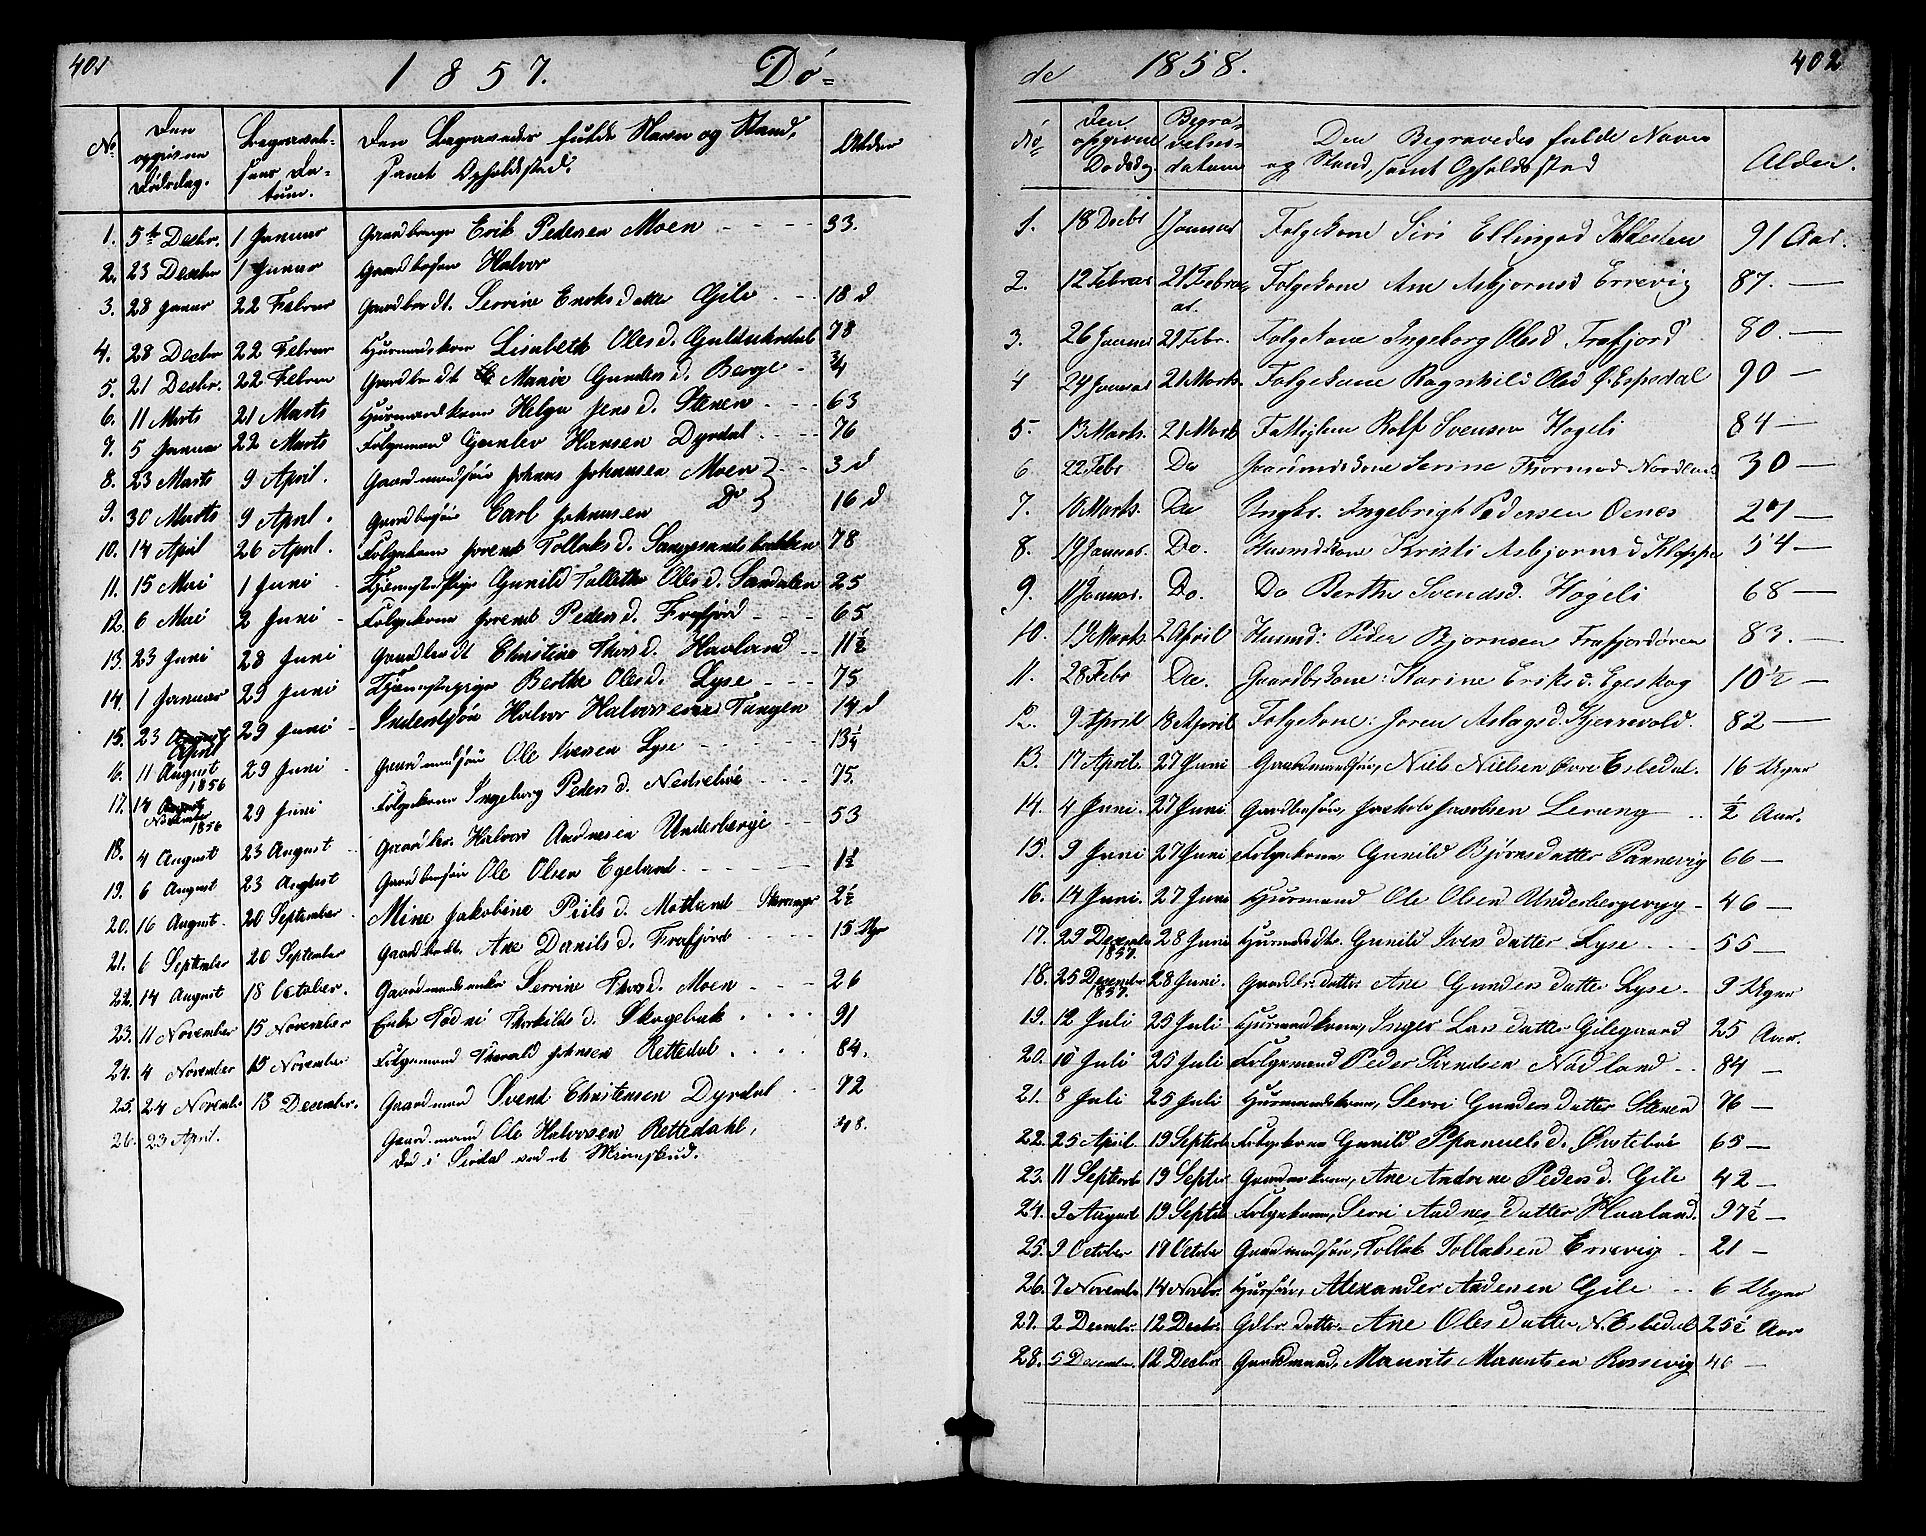 401
1857. Dø-
No
Den opgivne Dødsdag.
Begravelsens Datum.
Den Begravedes fulde Navn og Stand, samt Opholdssted.
Alder
1. 5te Decbr. 1 Januar Gaardbruger Erik Pedersen Moen 33.
2. 23 Decbr 1 Januar Halvor
3. 28 Januar 22 Februar Gaardbr dt. Serrine Eriksdatter Gilje 18 d
4. 28 Decbr 22 Februar Huusmandskone Lisabeth Olesd. 78
5. 21 Decbr. 22 Februar Gaardbr dt Marie Gundersd. Berge 3/4
6. 11 Marts 21 Marts Huusmandskone Helga Jensd. Steen 63
7. 5 Januar 22 Marts Folgemand Gunlev Hansen Dyrdal 76
8. 23 Marts 9 April. Gaardmandssøn Johans Johannsen Moen 3 d
9. 30 Marts 9 April. Carl Johannsen Do 16 d
10. 14 April 26 April. Folgekone Jorend Tollaksd. Songesandsbakken 78
11. 15 Mai 1 Juni Tjenestepige Gunild Tollette Olesd. Sandalen 25
12. 6 Mai 2 Juni Folgekone Jorend Pedersd. Frafjord 65
13. 23 Juni 28 Juni Gaardbr dt Christine Thorsd. Haaland 11½
14. 1 Januar 29 Juni Tjenestepige Berthe Olesd. Lyse 75
15. 23 April 29 Juni Inderstsøn Halvor Halvorsen Tangen 14 d
16. 11 August 1856 29 Juni Gaardmandssøn Ole Iversen Lyse 13¼
17. 14 November 1856 29 Juni Folgekone Ingeborg Pedersd. Nedrebø 75.
18. 4 August 23 August Gaardbr. Halvor Aadnesen Underberge 53
19. 6 August 23 August Gaardbrsøn Ole Olsen Egeland 1½
20. 16 August 20 September Mine Jakobine Piilsd. Motland Stavanger 2½
21. 6 September 20 September Ane Danielsd. Frafjord 15 Uger
22. 14 August 18 October. Gaardmandsenke Serrine Thorsd. Moen 26
23. 11 November 15 November Enke Thorkildsd. Skogebak 91
24. 4 November 15 November Folgemand Johnsen Rettedal 84.
25. 24 Novembr 13 December. Gaardmand Svend Christensen Dyrdal 72
26. 23 April. Gaardmand Ole Halvorsen Rettedahl, 48.
Død i Sirdal ved et
402
de 1858.
No
Den opgivne Dødsdag
Begravelsesdatum
Den Begravedes fulde Navn og Stand, samt Opholdssted
Alder.
1. 18 Decbr 1 Januar Folgekone Siri Ellingsd 91 Aar.
2. 12 Februar 21 Februar. Folgekone Ane Asbjørnsd Errevig 87.
3. 26 Januar 21 Febr. Folgekone Ingeborg Olesd Frafjord 80.
4 24 Januar 21 Marts. Folgekone Ragnhild Olesd Ø. Espedal 90
5. 13 Marts. 21 Marts Fattiglem Rolf Svensen Høgeli 84
6. 22 Febr Do Gaarmdskone Serine Thormod Nordland 30
7. 10 Marts. Do Ungkr. Ingebrigt Pedersen Oenes 24
8. 19 Januar. Do. Husmdskone Kristi Asbjørnsd Kloppe 54
9. 11 Januar. Do. Do Berthe Svendsd. Høgeli 68
10. 13 Marts. 2 April Husmd: Peder Bjornsen Frafjordøren 83.
11. 28 Febr Do. Karine Eriksd. Egeskog 10½
12. 9 April 18 April Folgekone: Joren Aslagsd. Kjerrevold. 82
13. 17 April. 27 Juni Gaardmandssøn, Niels Nielsen Øvre Esledal. 16 Uger
14. 4 Juni. 27 Juni Gaardbrsøn, Jakob Jacobsen Lerang ½ Aar.
15. 9 Juni 27 Juni Folgekone, Gunild Bjørnsdatter Pannevig 66
16. 14 Juni. 27 Juni Huusmand Ole Olsen Underbergevig 46
17. 29 December 1857. 28 Juni Gunild Iversdatter Lyse 55
18. 25 December 1857. 28 Juni. Gaardbr. datter Ane Gundersdatter Lyse 9 Uger
19. 12 Juli 25 Juli Huusmandskone, Inger Larsdatter Gilegaard 25 Aar.
20. 10 Juli 25 Juli Folgemand Peder Svendsen Nødland 84
21. 8 Juli 25 Juli Huusmandskone, Serri Gundersdatter Steen 76
22. 25 April. 19 September Folgekone Gunild Øvstebø 65
23. 11 Septembr 19 Septbr Gaardmkone, Ane Andrine Pedersd. Gile 42
24. 9 August 19 Septbr Folgekone, Serri Aadnesdatter Haaland. 97½
25. 9 October 17 October Gaardmandssøn, Tollak Tollaksen Errevig 21
26. 7 Novembr 14 Novbr. Alexander Andersen Gile 6 Uger
27. 2 Decembr. 12 Decbr. Gdbr. datter Ane Olesdatter N. Esledal 25½ Aar
28. 5 December. 12 Decbr Gaardmand, Maurits Mauritsen Rossevig 40